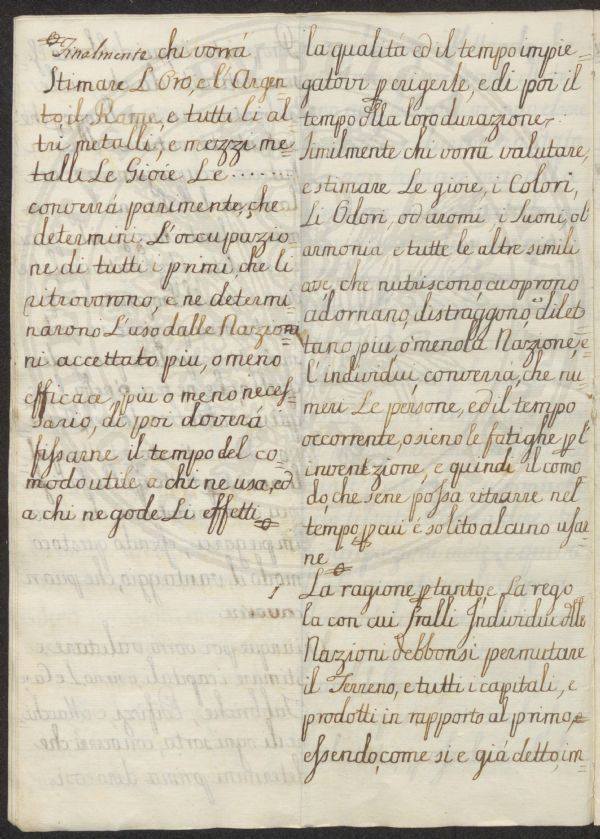 Finalmente chi vorrá
Stimare L'Oro, e l'Argen=
to, il Rame, e tutti li al=
tri metalli, e mezzi me=
talli Le Gioie Le ........
converrá parimente, che
determini L'occupazio=
ne di tutti i primi, che li
ritrovorono, e ne determi=
narono L'uso dalle Nazio=
ni accettato piu, o meno
efficace, piu o meno neces=
sario, di poi doverá
fissarne il tempo del co=
modo utile a chi ne usa, ed
a chi ne gode Li effetti
la qualitá ed il tempo impie=
gatovi p erigerle, e di poi il
tempo dlla loro durazione.
Similmente chi vorrá valutare,
e stimare Le gioie, i Colori,
Li Odori, od aromi i Suoni, ol
armonia e tutte le altre simili
che nutriscono, cuoprono
adornano, distraggono, dilet=
tano piu, o meno la Nazione, e
l'individui, converrá, che nu=
meri Le persone, ed il tempo
occorrente, o sieno le fatighe p l'
inventzione, e quindi il como=
do, che se ne possa ritrarre nel
tempo p cui é solito alcuno usar=
ne
La ragione ptanto e La rego=
la con cui fralli Individui dlle
Nazioni debbonsi permutare
il Terreno, e tutti i capitali, e
prodotti in rapporto al primo,
essendo, come si e giá detto, im=